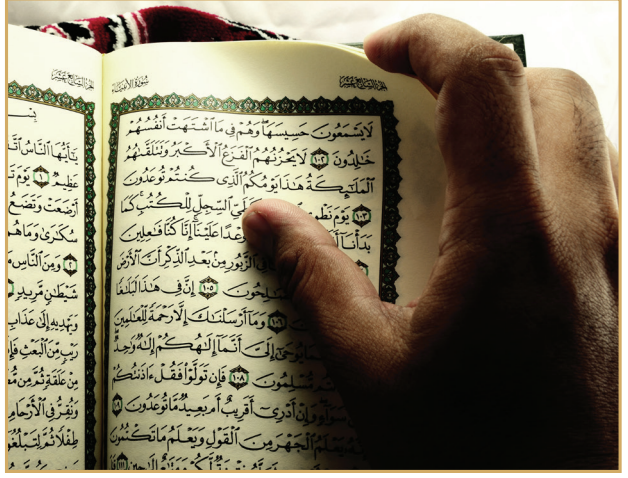 الجزء السابع عشر
سورة الأنبياء
لَا يَسْمَعُونَ حَسِيسَهَا وَهُمْ فِي مَا ٱشْتَهَتْ أَنفُسُهُمْ
خَٰلِدُونَ ١٠٢ لَا يَحْزُنُهُمُ ٱلْفَزَعُ ٱلْأَكْبَرُ وَتَتَلَقَّىٰهُمُ
ٱلْمَلَٰٓئِكَةُ هَٰذَا يَوْمُكُمُ ٱلَّذِي كُنتُمْ تُوعَدُونَ
١٠٣ يَوْمَ نَطْوِي ٱلسِّجِلِّ لِلْكُتُبِ كَمَا
بَدَأْنَآ وَعْدًا عَلَيْنَآ إِنَّا كُنَّا فَٰعِلِينَ
فِي ٱلزَّبُورِ مِنۢ بَعْدِ ٱلذِّكْرِ أَنَّ ٱلْأَرْضَ
ٱلصَّٰلِحُونَ ١٠٥ إِنَّ فِي هَٰذَا لَبَلَٰغًا
١٠٦ وَمَآ أَرْسَلْنَٰكَ إِلَّا رَحْمَةً لِّلْعَٰلَمِينَ
يُوحَىٰٓ إِلَيَّ أَنَّمَآ إِلَٰهُكُمْ إِلَٰهٌ وَٰحِدٌ
مُّسْلِمُونَ ١٠٨ فَإِن تَوَلَّوْا۟ فَقُلْ ءَاذَنتُكُمْ
سَوَآءٍ وَإِنْ أَدْرِيٓ أَقَرِيبٌ أَم بَعِيدٌ مَّا تُوعَدُونَ ١٠٩
يَعْلَمُ ٱلْجَهْرَ مِنَ ٱلْقَوْلِ وَيَعْلَمُ مَا تَكْتُمُونَ
لَّكُمْ وَمَتَٰعٌ إِلَىٰ حِينٍ ١١١
الجزء السابع عشر
يَٰٓأَيُّهَا ٱلنَّاسُ
عَظِيمٌ ١ يَوْمَ
أَرْضَعَتْ وَتَضَعُ
سُكَٰرَىٰ وَمَا هُم
٢ وَمِنَ ٱلنَّاسِ
شَيْطَٰنٍ مَّرِيدٍ
وَيَهْدِيهِ إِلَىٰ عَذَابِ
رَيْبٍ مِّنَ ٱلْبَعْثِ
مِنْ عَلَقَةٍ ثُمَّ مِن
وَنُقِرُّ فِي ٱلْأَرْحَامِ
طِفْلًا ثُمَّ لِتَبْلُغُوٓا۟